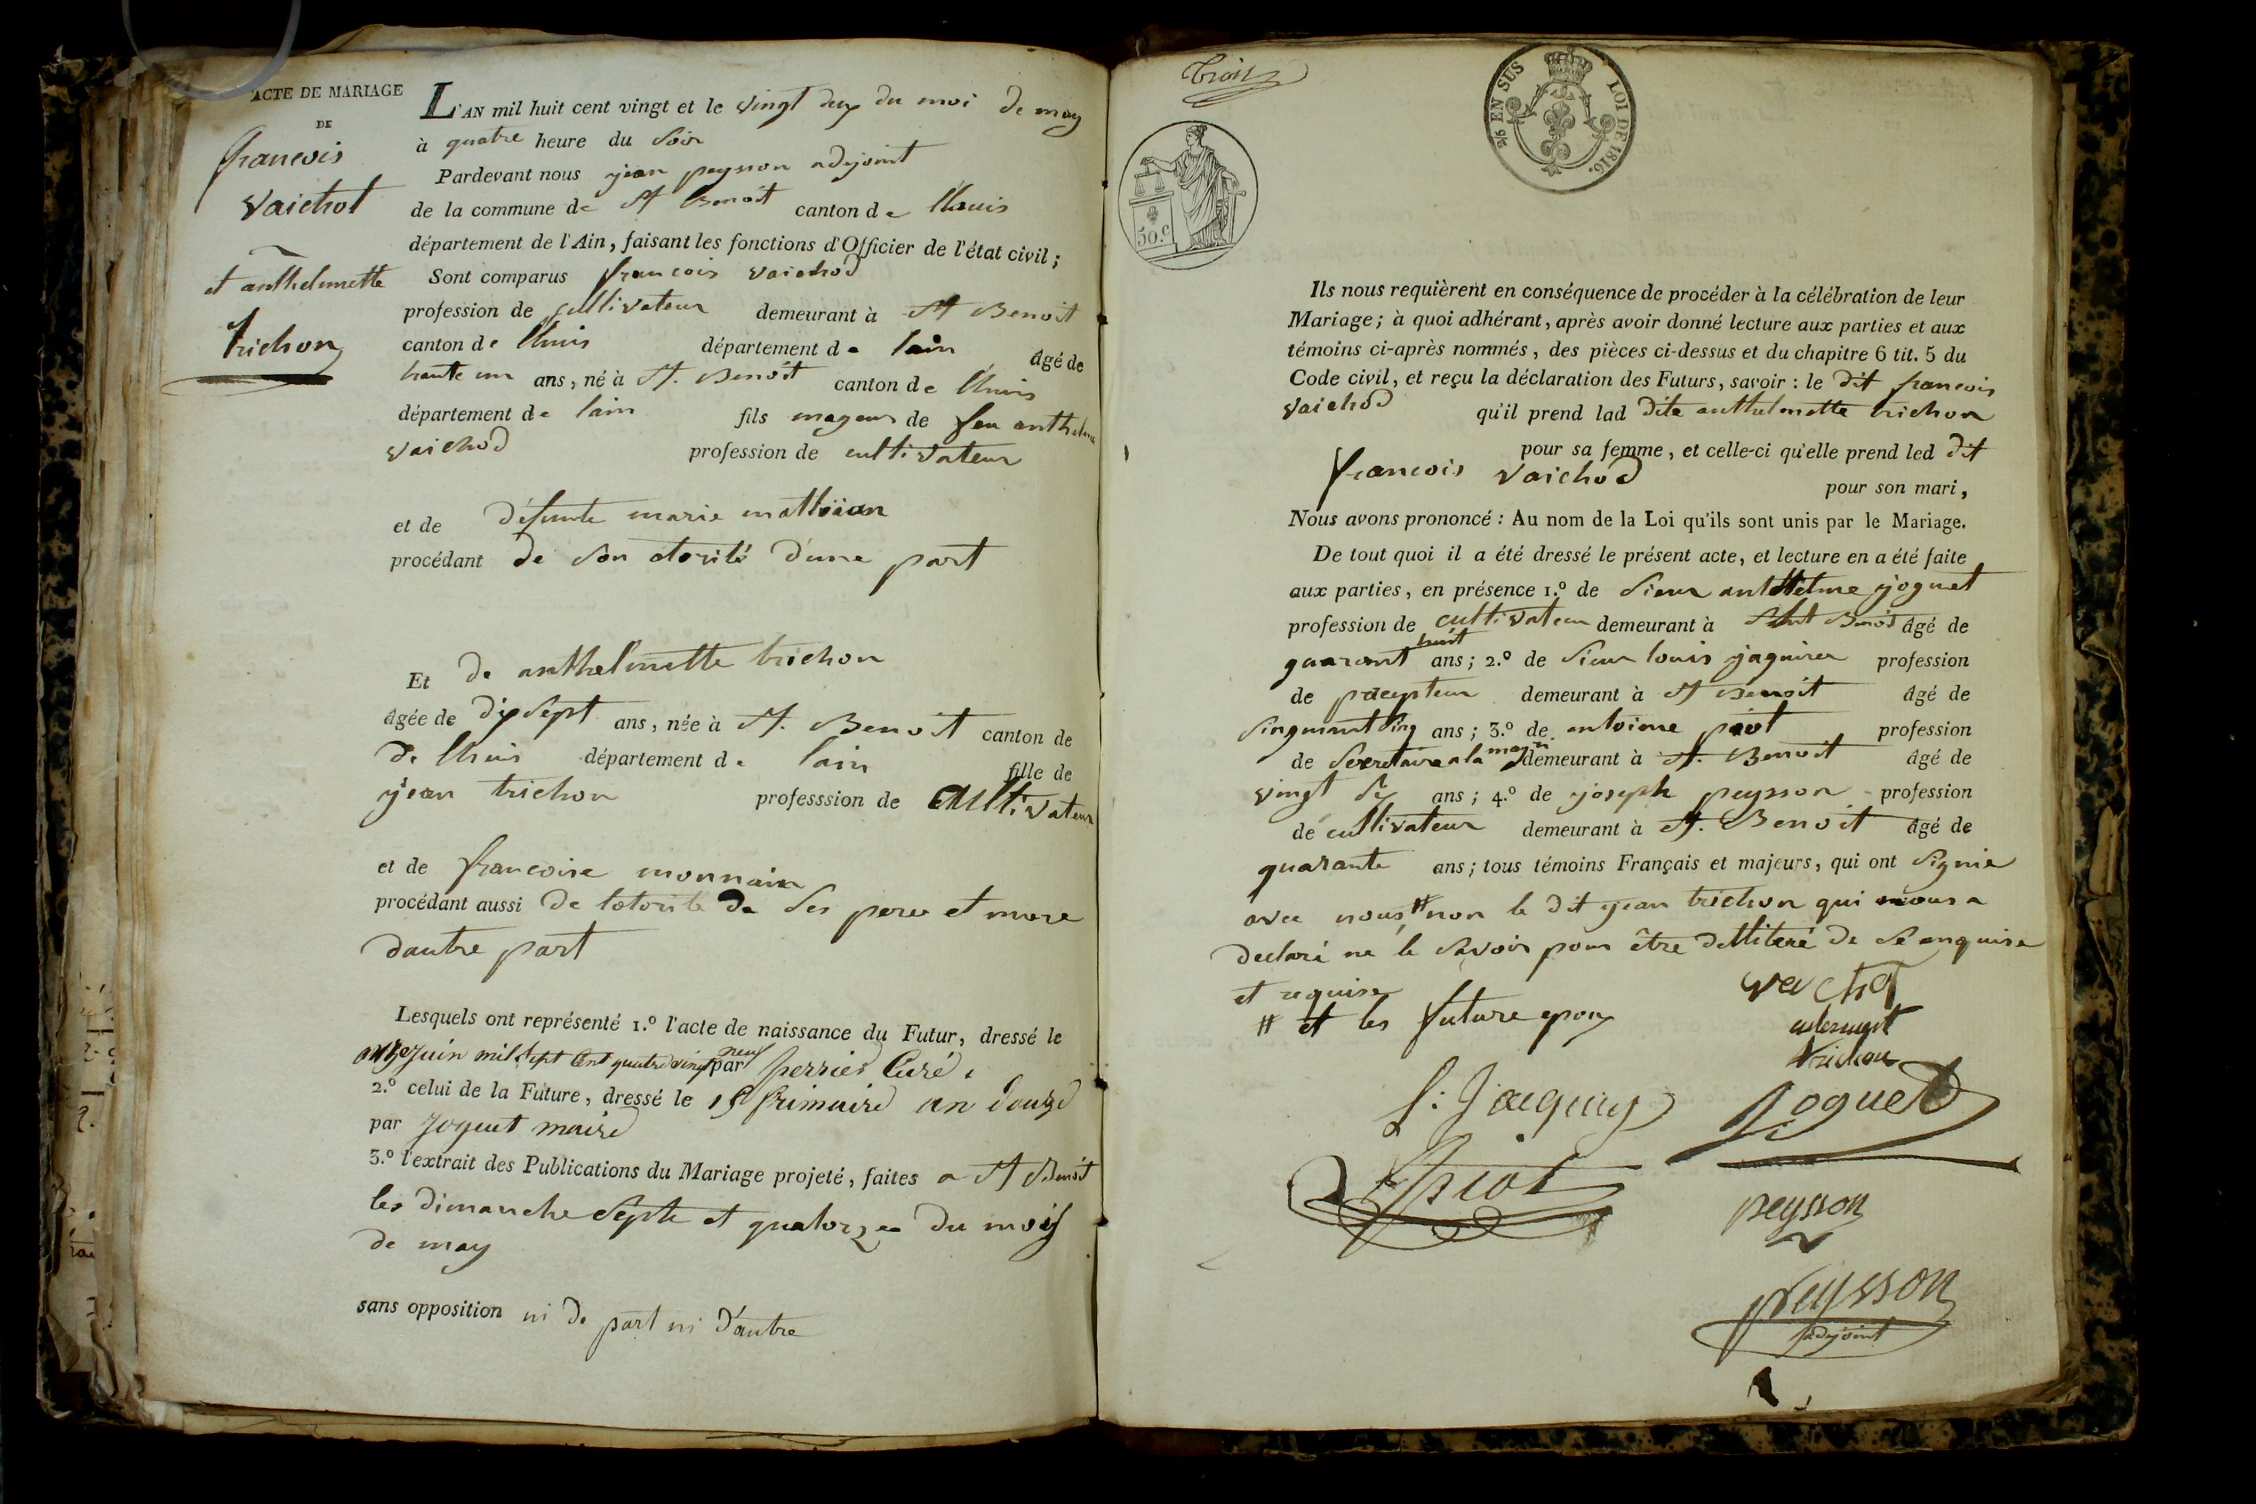 ACTE DE MARIAGE
DE
francois
vaichot
et anthelmette
trichon
L'AN mil huit cent vingt et le vingt deux du moi de may
à quatre heure du soir
Pardevant nous jean peysson adjoint
de la commune de St Benoit canton de lhuis
département de l'Ain, faisant les fonctions d'Officier de l'état civil;
Sont comparus francois vaichod
profession de cultivateur demeurant à St Benoit
canton de lhuis département de lain âgé de
trante un ans, né à St. Benoit canton de lhuis
département de lain fils mageur de feu anthelme
vaichod profession de cultivateur
et de défunte marie mathian
procédant de son otorité d'une part
Et de anthelmette trichon
âgée de dix sept ans, née à St. Benoit canton de
de lhuis département de lain fille de
jean trichon professsion de cultivateur
et de francoise monnain
procédant aussi de lotorité de ses pere et mere
dautre part
Lesquels ont représenté 1.º l'acte de naissance du Futur, dressé le
onze juin mil sept cent quatre vingt neuf par perrier Curé,
2.º celui de la Future, dressé le 15 frimaire an douze
par Joguet maire
3.º l'extrait des Publications du Mariage projeté, faites a St Benoit
les dimanche septe et quatorze du mois
de may
sans opposition ni de part ni d'autre
trois
2/5 EN SUS LOI DE 1816.
50.c
Ils nous requièrent en conséquence de procéder à la célébration de leur
Mariage; à quoi adhérant, après avoir donné lecture aux parties et aux
témoins ci-après nommés, des pièces ci-dessus et du chapitre 6 tit. 5 du
Code civil, et reçu la déclaration des Futurs, savoir: le dit francois
vaichod qu'il prend lad dite anthelmette trichon
pour sa femme, et celle-ci qu'elle prend led dit
francois vaichod pour son mari,
Nous avons prononcé: Au nom de la Loi qu'ils sont unis par le Mariage.
De tout quoi il a été dressé le présent acte, et lecture en a été faite
aux parties, en présence 1.º de sieur anthelme joguet
profession de cultivateur demeurant à St Benoit âgé de
quarant huit ans; 2.º de sieur louis jaquier profession
de précepteur demeurant à St Benoit âgé de
singuant sing ans; 3.º de antoine piot profession
de secretaire a la mayri demeurant à St. Benoit âgé de
vingt six ans; 4.º de joseph peysson profession
de cultivateur demeurant à St. Benoit âgé de
quarante ans; tous témoins Français et majeurs, qui ont signie
avec nous # non le dit jean trichon qui nous a
declaré ne le savoir pour être dellitéré de se enquise
et requise
# et les future epoux
vaichot
trichon
Joguet
Piot
peysson
peysson
adjoint